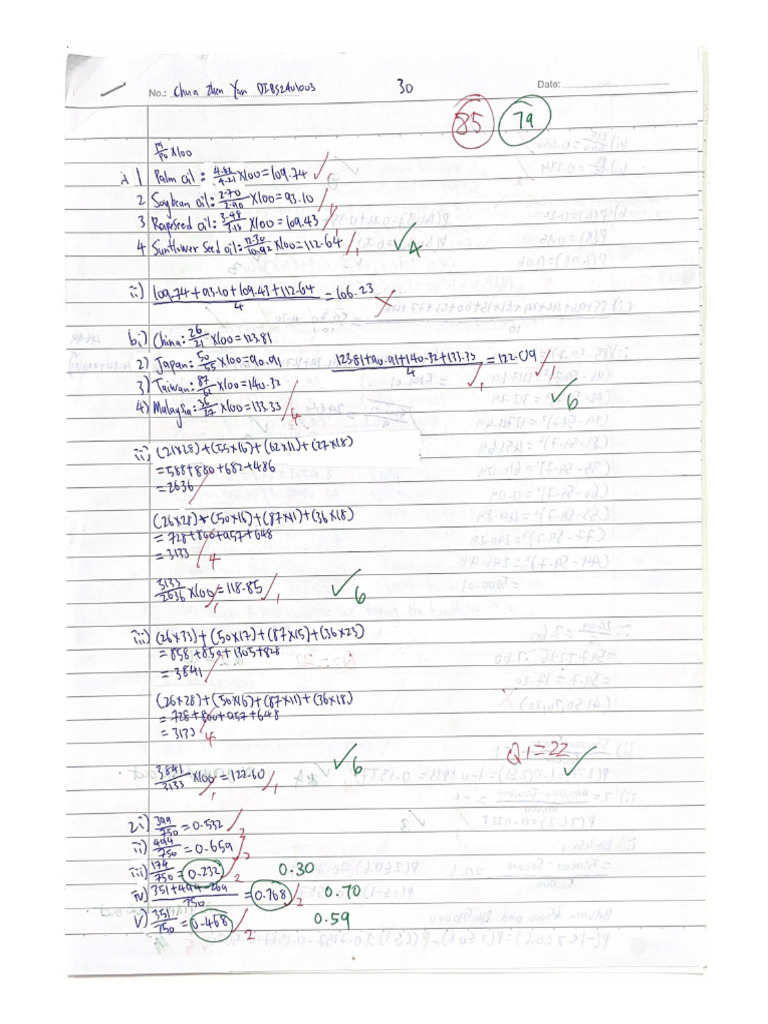 No.: Chua Zhen Yan DIBS2401003 30 Date:
85 79
P1/P0 ×100
1 Palm oil: 4.62/4.21 ×100=109.74
2 Soybean oil: 2.70/2.90 ×100=93.10
3 Rapeseed oil: 3.48/3.18 ×100=109.43
4 Sunflower seed oil: 12.30/10.92 ×100=112.64 4
ii) 109.74+93.10+109.43+112.64/4 =106.23
bi) China: 26/21 ×100=123.81
2) Japan: 50/55 ×100=90.91 123.81+90.91+140.32+133.33/4 =122.09
3) Taiwan: 87/62 ×100=140.32
4) Malaysia: 36/27 ×100=133.33 4 6
ii) (21×28)+(55×16)+(62×11)+(27×18)
=588+880+682+486
=2636
(26×28)+(50×16)+(87×11)+(36×18)
=728+800+957+648
=3133 4
3133/2636 ×100=118.85 6
iii) (26×33)+(50×17)+(87×15)+(36×23)
=858+850+1305+828
=3841
(26×28)+(50×16)+(87×11)+(36×18)
=728+800+957+648
=3133 4
3841/3133 ×100=122.60 6
Q1=22
2i) 399/750 =0.532 2
ii) 494/750 =0.659 2
iii) 174/750 =0.232 2 0.30
iv) 351+494-269/750 =0.768 2 0.70
v) 351/750 =0.468 2 0.59